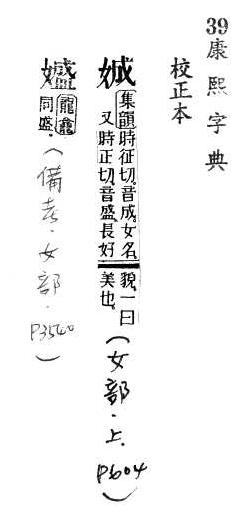 39康熙字典
校正本
娍
集韻時征切,音成。女名。
又時正切,音盛。長好
貌。一曰
美也。
(女部.上.P604)
龍龕
同盛.
(備考.女部.P3540)